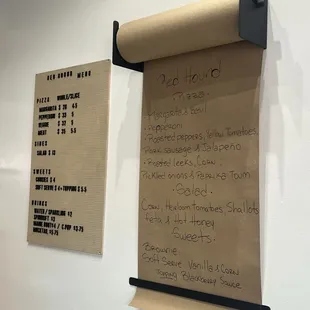 RED HOUND MENU
PIZZA WHOLE/SLICE
MARGHERITA $ 28 4.5
PEPPERONI $ 33 5
VEGGIE $ 33 5
MEAT $ 35 5.5
SIDES
SALAD $ 13
SWEETS
COOKIES $ 4
SOFT SERVE $ 4 + TOPPING $ 5.5
DRINKS
$2
$3
$3.75
Red Hound
Pizza
Tomato & Basil
· Pepperoni
· Roasted peppers, Yellow Tomatoes,
Pork sausage & Jalapeño
· Roasted leeks, Corn,
Pickled onions & Paprika
Salad
Corn, Heirloom Tomatoes, Shallots
Feta & Hot Honey
Sweets
Brownie
Soft Serve Vanilla & Corn
Blackberry Sauce